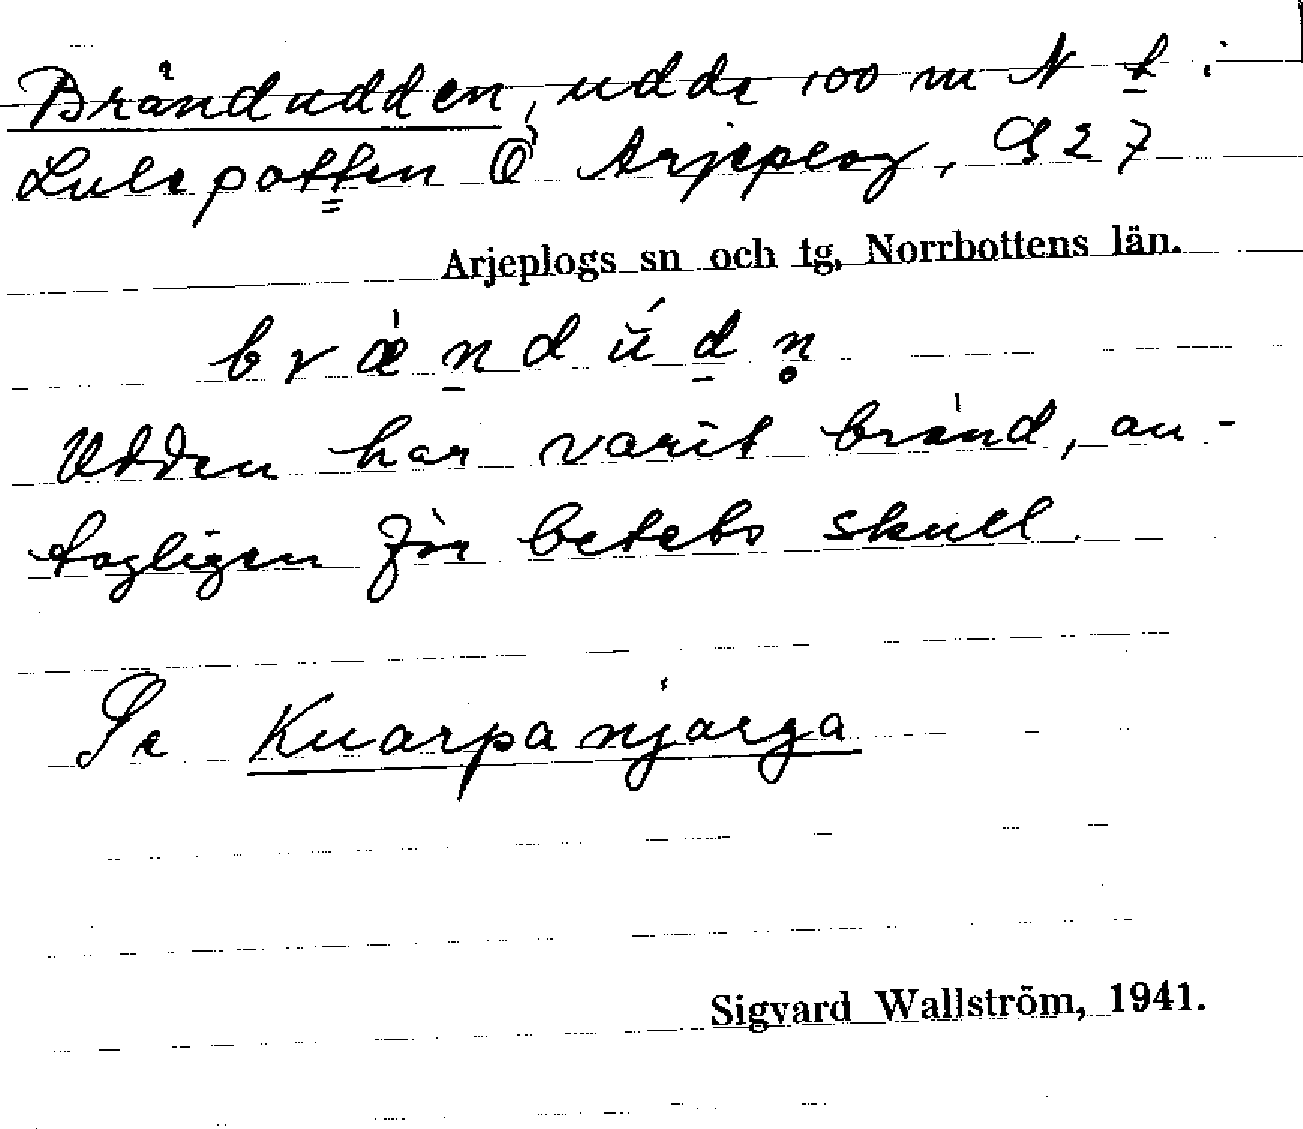 Brändudden, udde 100 m N t i
Lulepotten Ö Arjeplog, G 27
Arjeplogs sn och tg, Norrbottens län.
br&#x01E3;̀ndúdn̥
Udden har varit bränd, an-
tagligen för betets skull
Se Kuarpanjarga
Sigvard Wallström, 1941.